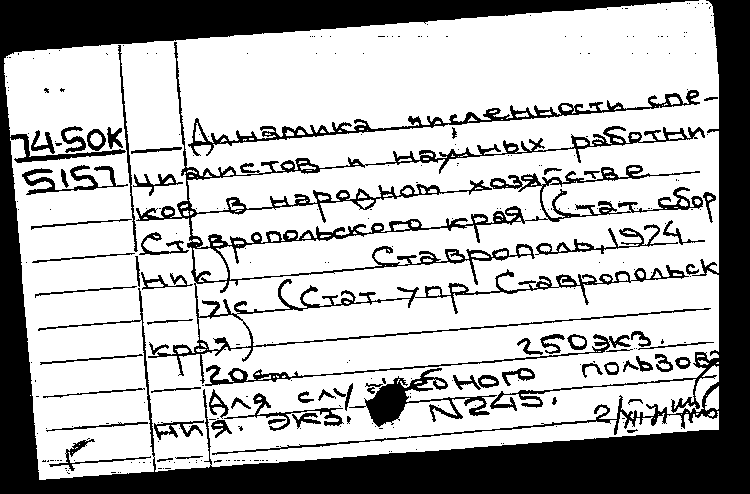 74-50К Динамика численности спе-
5157 циалистов и научных работни-
ков в народном хозяйстве
Ставропольского края. (Стат. сбор
ник). Ставрополь, 1974.
71с. (Стат. упр. Ставропольск
края)
20см. 250экз.
Для служебного пользова
ния. экз. N245.